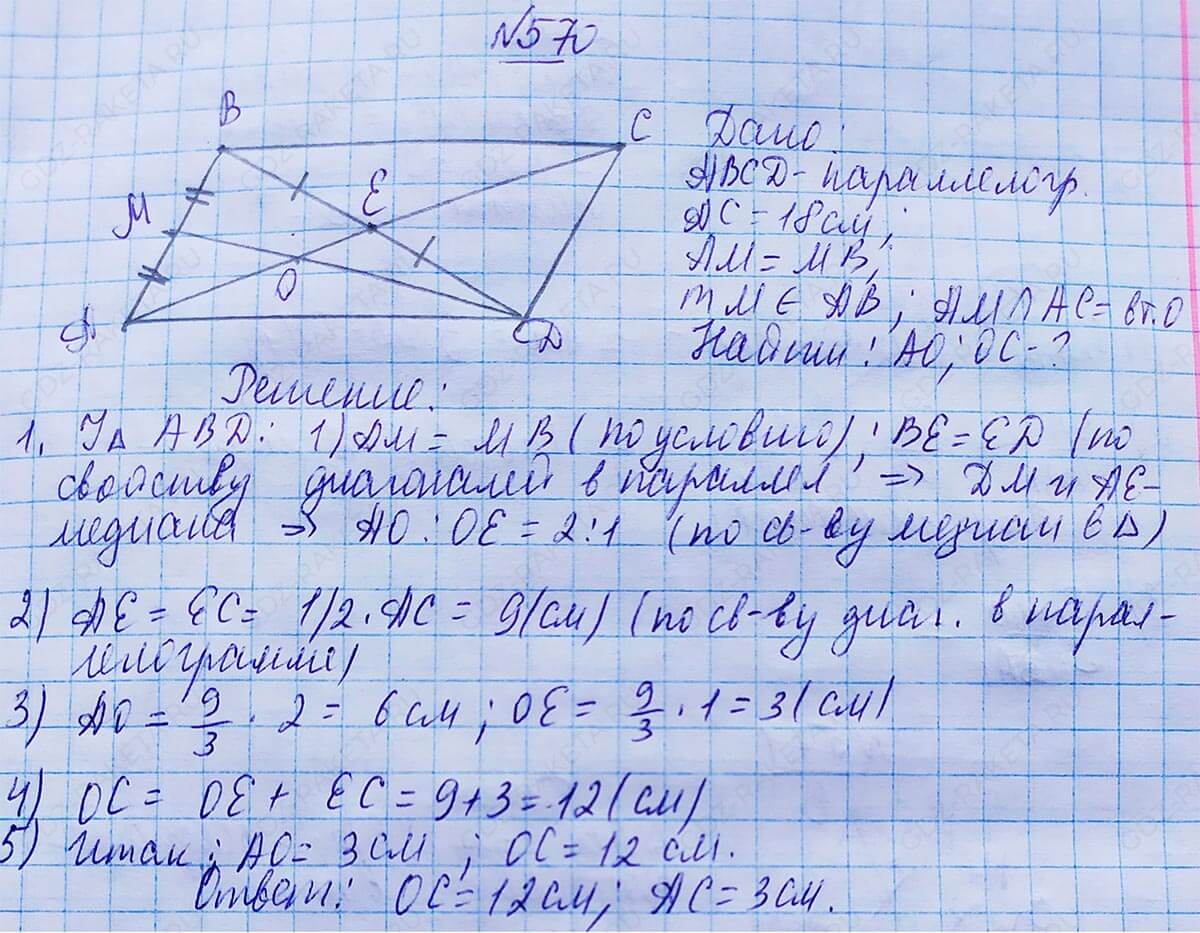 №570
B
C
M
E
O
A
D
Дано:
ABCD - параллелогр.
AC = 18 см;
AM = MB;
т M ∈ AB; AM ∩ AC = в т. O
Найти: AO; OC - ?
Решение:
1. У△ ABD: 1) AM = MB (по условию); BE = ED (по
свойству диагоналей в параллел ⇒ DM и AE-
медиана ⇒ AO : OE = 2:1 (по св-ву медиан в △)
2) AE = EC = 1/2 · AC = 9(см) (по св-ву диаг. в парал-
лелограмме)
3) AO = 9/3 · 2 = 6 см; OE = 9/3 · 1 = 3(см)
4) OC = OE + EC = 9+3 = 12(см)
5) Итак: AO = 3 см; OC = 12 см.
Ответ: OC = 12 см; AC = 3 см.